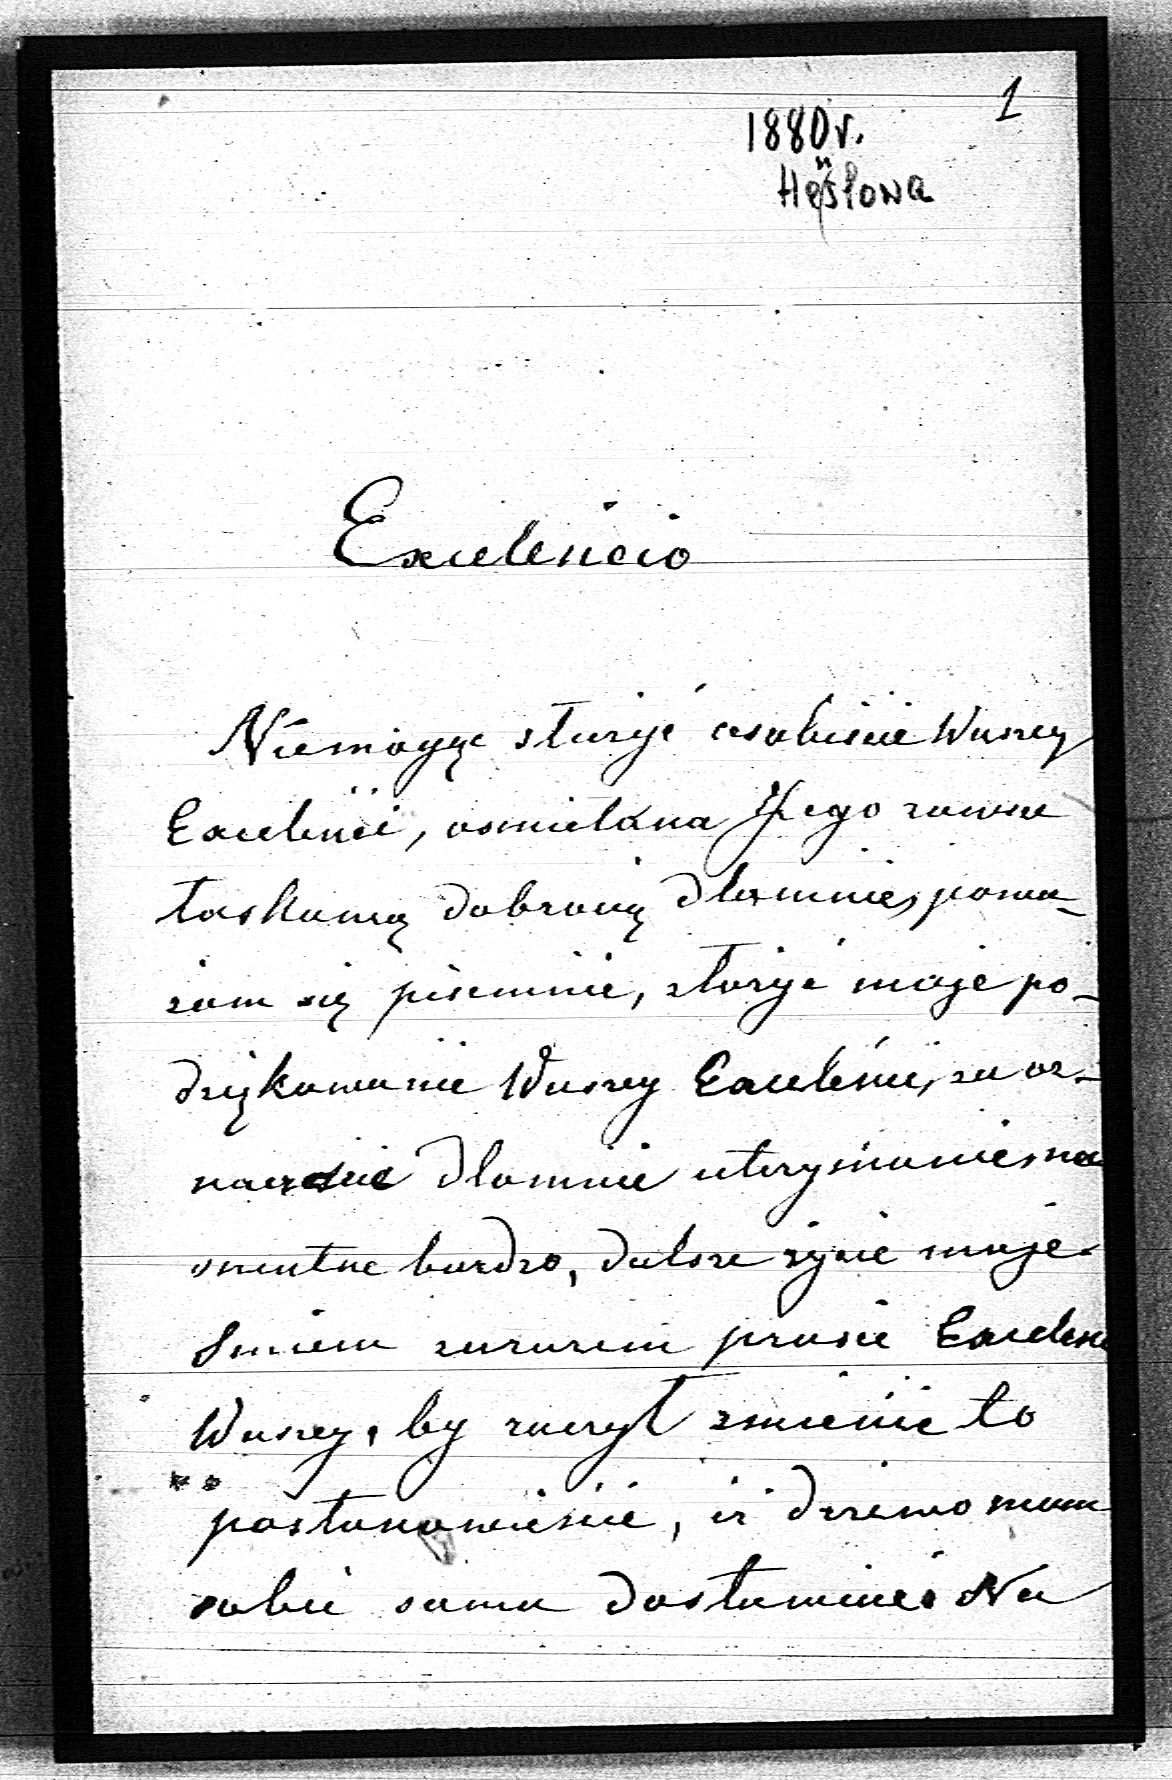 1
1880 r.
Hęńslowa
Excelencio
Niemogąc złożyć osobiście Waszey
Excelencii, osmielona Jego zawsze
łaskawą dobrocią dlamnie, powa-
żam się pisemnie, złożyć moje po-
dziękowanie Waszey Excelencii, za oz-
naczenie dlamnie utrzymanie, na
smutne bardzo, dalsze życie moje.
Smiem zarazem prosić Excelencii
Waszey, by raczył zmienić to
postanowienie, iż drzewo mam
sobie sama dostawiać. Na